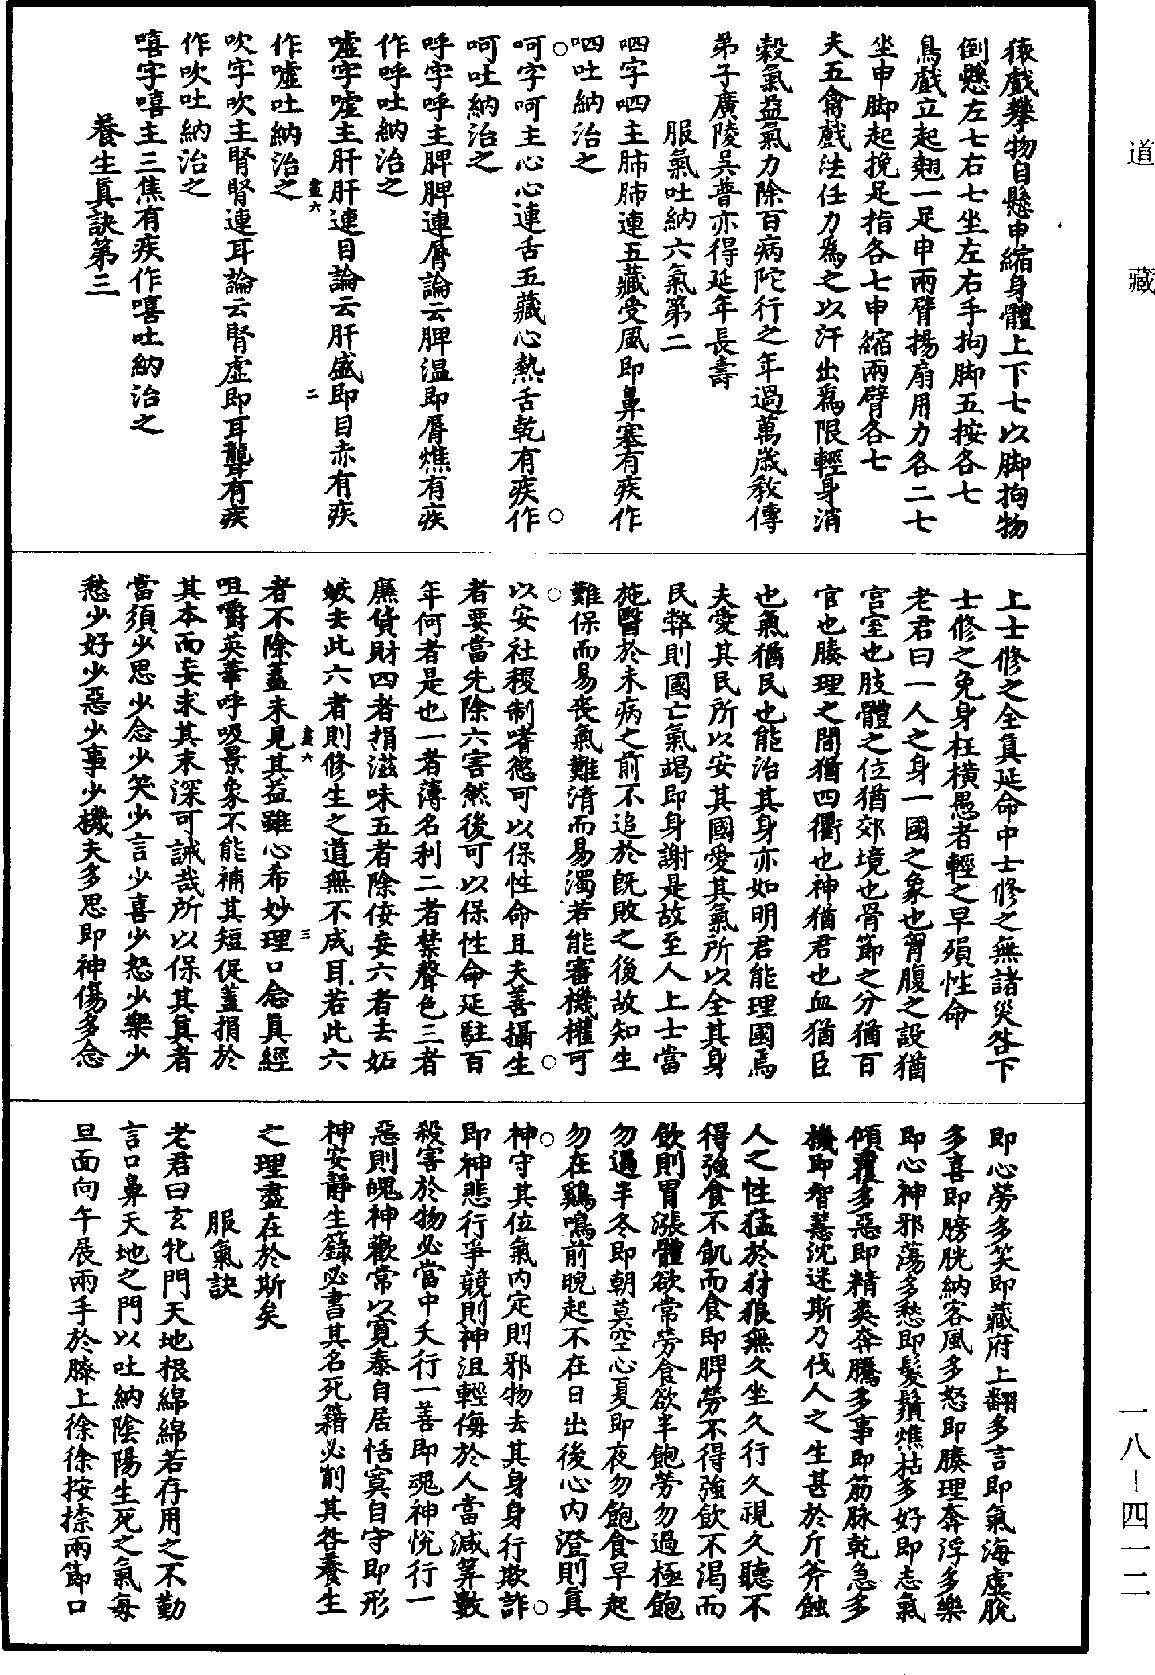 道藏
猿戲攀物自懸申縮身體上下七以脚拘物
倒懸左七右七坐左右手拘脚五按各七
鳥戲立起翹一足申兩臂揚扇用力各二七
坐申脚起挽足指各七申縮兩臂各七
夫五禽戲法任力爲之以汗出爲限輕身消
穀氣益氣力除百病陀行之年過萬歲教傳
弟子廣陵吳普亦得延年長壽
服氣吐納六氣第二
呬字呬主肺肺連五藏受風即鼻塞有疾作
呬吐納治之
呵字呵主心心連舌五藏心熱舌乾有疾作
呵吐納治之
呼字呼主脾脾連脣論云脾温即脣燋有疾
作呼吐納治之
噓字噓主肝肝連目論云肝盛即目赤有疾
盡六 二
作噓吐納治之
吹字吹主腎腎連耳論云腎虛即耳聾有疾
作吹吐納治之
嘻字嘻主三焦有疾作嘻吐納治之
養生真訣第三
上士修之全真延命中士修之無諸災咎下
士修之免身枉橫愚者輕之早殞性命
老君曰一人之身一國之象也胷腹之設猶
宫室也肢體之位猶郊境也骨節之分猶百
官也腠理之間猶四衢也神猶君也血猶臣
也氣猶民也能治其身亦如明君能理國焉
夫愛其民所以安其國愛其氣所以全其身
民弊則國亡氣竭即身謝是故至人上士當
施醫於未病之前不追於既敗之後故知生
難保而易喪氣難清而易濁若能審機權可
以安社稷制嗜慾可以保性命且夫善攝生
者要當先除六害然後可以保性命延駐百
年何者是也一者薄名利二者禁聲色三者
廉貨財四者捐滋味五者除佞妄六者去妬
嫉去此六者則修生之道無不成耳若此六
盡六 三
者不除蓋未見其益雖心希妙理口念真經
咀嚼英華呼吸景象不能補其短促蓋捐於
其本而妄求其末深可誡哉所以保其真者
當須少思少念少笑少言少喜少怒少樂少
愁少好少惡少事少機夫多思即神傷多念
即心勞多笑即藏府上翻多言即氣海虛脱
多喜即膀胱納客風多怒即腠理奔浮多樂
即心神邪蕩多愁即髮鬚燋枯多好即志氣
傾覆多惡即精爽奔騰多事即筋脉乾急多
機即智慧沈迷斯乃伐人之生甚於斤斧蝕
人之性猛於豺狼無久坐久行久視久聽不
得強食不飢而食即脾勞不得強飲不渴而
飲則胃漲體欲常勞食欲半飽勞勿過極飽
勿過半冬即朝莫空心夏即夜勿飽食早起
勿在鷄鳴前晚起不在日出後心内澄則真
神守其位氣内定則邪物去其身身行欺詐
即神悲行爭競則神沮輕侮於人當減算數
殺害於物必當中夭行一善即魂神悅行一
惡則魄神歡常以寬泰自居恬寞自守即形
神安靜生籙必書其名死籍必削其咎養生
之理盡在於斯矣
服氣訣
老君曰玄牝門天地根綿綿若存用之不勤
言口鼻天地之門以吐納陰陽生死之氣每
旦面向午展兩手於膝上徐徐按捺兩節口
一八—四一二